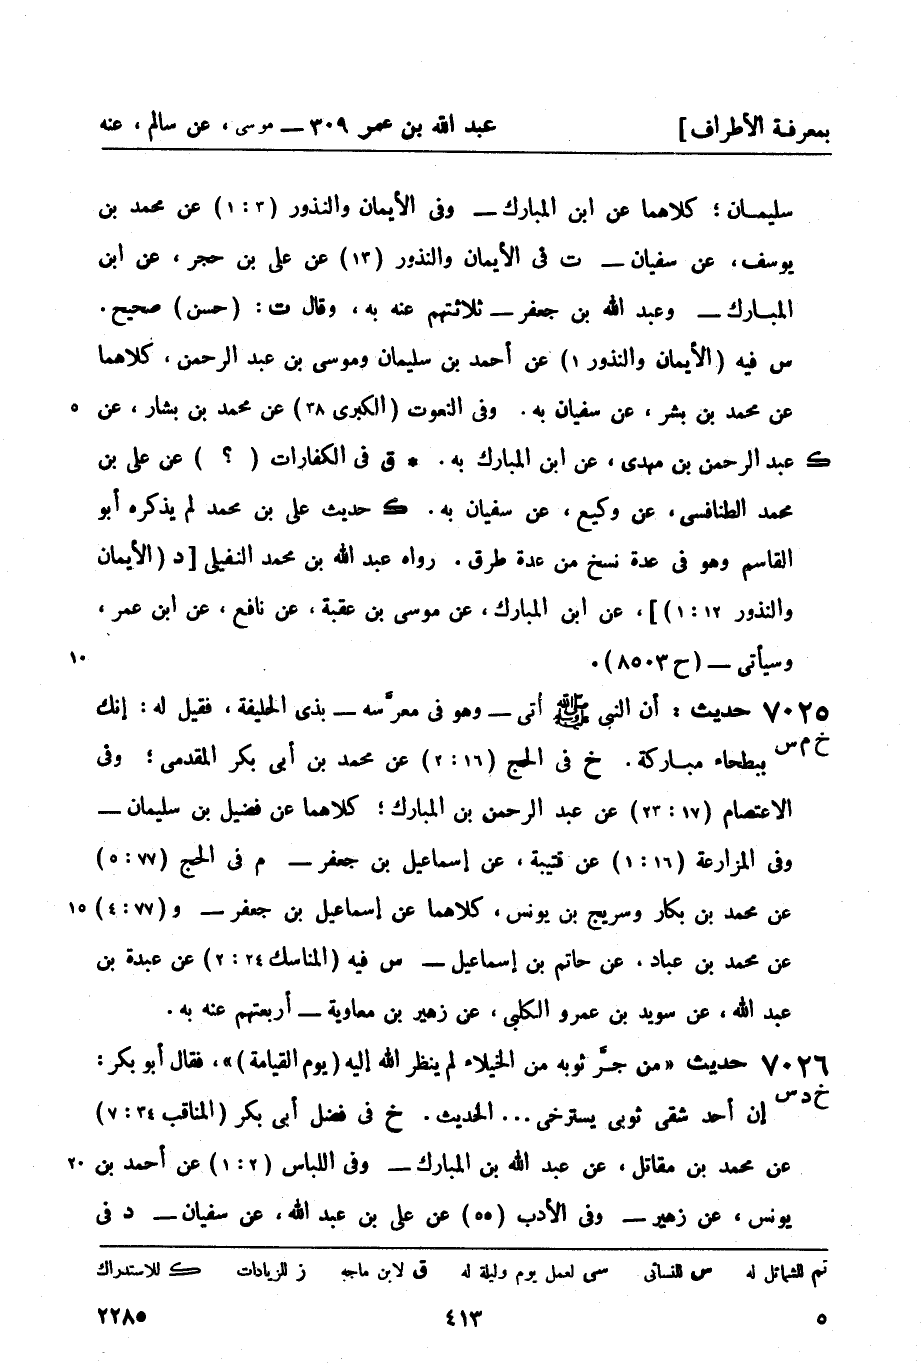 بمعرفة الأطراف] عبد الله بن عمر ٣٠٩ — موسى ، عن سالم ، عنه
سليمـان ؛ كلاهما عن ابن المبارك — وفى الأيمان والنذور (٣ : ١) عن محمد بن
يوسف، عن سفيان — ت فى الأيمان والنذور (١٣) عن على بن حجر ، عن ابن
المبـارك — وعبد الله بن جعفر — ثلاثتهم عنه به ، وقال ت : (حسن) صحيح .
س فيه (الأيمان والنذور ١) عن أحمد بن سليمان وموسى بن عبد الرحمن ، كلاهما
عن محمد بن بشر ، عن سفيان به . وفى النعوت (الكبرى ٣٨) عن محمد بن بشار ، عن ٥
ك عبد الرحمن بن مهدى ، عن ابن المبارك به . * ق فى الكفارات ( ؟ ) عن على بن
محمد الطنافسى ، عن وكيع ، عن سفيان به . ك حديث على بن محمد لم يذكره أبو
القاسم وهو فى عدة نسخ من عدة طرق . رواه عبد الله بن محمد النفيلى [د (الأيمان
والنذور ١٢ : ١)] ، عن ابن المبارك ، عن موسى بن عقبة ، عن نافع ، عن ابن عمر ،
وسيأتى — (ح ٨٥٠٣) . ١٠
٧٠٢٥ حديث : أن النبى ﷺ أتى — وهو فى معرَّسه — بذى الحليفة ، فقيل له : إنك
خ م س ببطحاء مبـاركة . خ فى الحج (١٦ : ٢) عن محمد بن أبى بكر المقدمى ؛ وفى
الاعتصام (١٧ : ٢٣) عن عبد الرحمن بن المبارك ؛ كلاهما عن فضيل بن سليمان —
وفى المزارعة (١٦ : ١) عن قتيبة ، عن إسماعيل بن جعفر — م فى الحج (٧٧ : ٥)
عن محمد بن بكار وسريج بن يونس ، كلاهما عن إسماعيل بن جعفر — و (٧٧ : ٤) ١٥
عن محمد بن عباد ، عن حاتم بن إسماعيل — س فيه (المناسك ٢٤ : ٢) عن عبدة بن
عبد الله ، عن سويد بن عمرو الكلبى ، عن زهير بن معاوية — أربعتهم عنه به .
٧٠٢٦ حديث «من جرَّ ثوبه من الخيلاء لم ينظر الله إليه (يوم القيامة)» ، فقال أبو بكر :
خ د س إن أحد شقى ثوبى يسترخى ... الحديث . خ فى فضل أبى بكر (المناقب ٣٤ : ٧)
عن محمد بن مقاتل ، عن عبد الله بن المبارك — وفى اللباس (٢ : ١) عن أحمد بن ٢٠
يونس ، عن زهير — وفى الأدب (٥٥) عن على بن عبد الله ، عن سفيان — د فى
تم للشمائل له س للنسائى سى لعمل يوم وليلة له ق لابن ماجه ز للزيادات ك للاستدراك
٥ ٤١٣ ٢٢٨٥